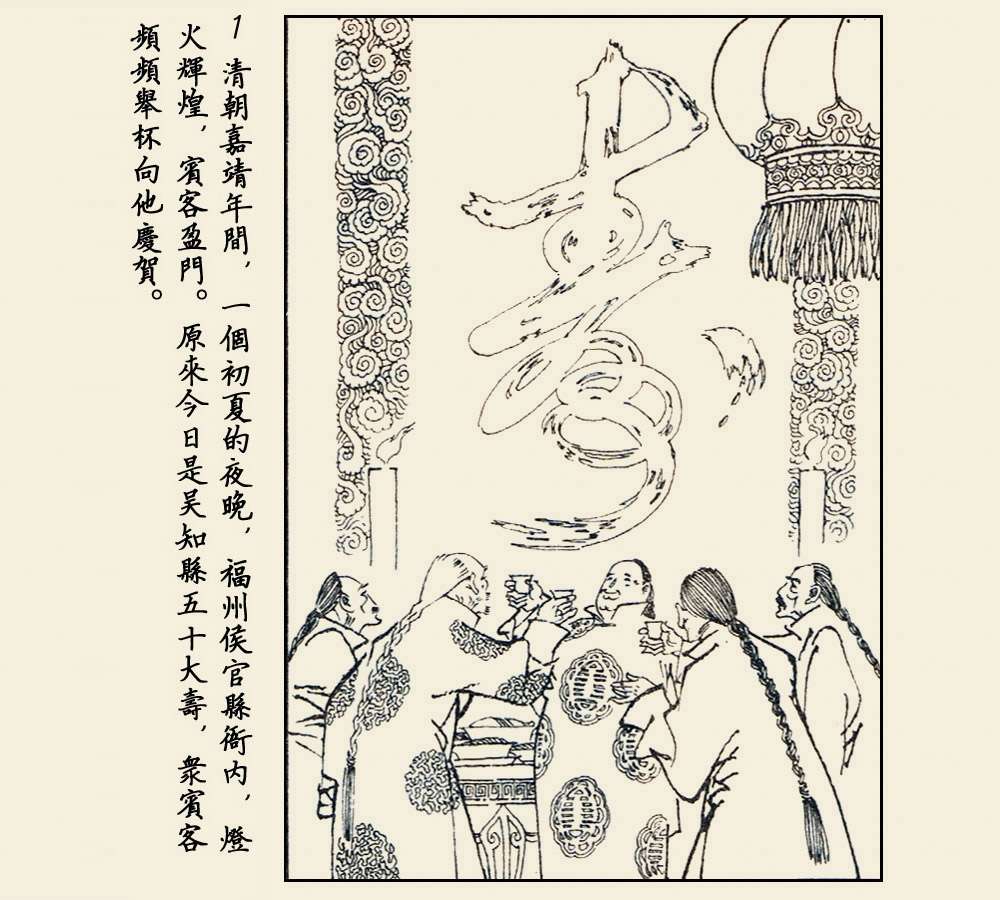 1 清朝嘉靖年間，一個初夏的夜晚，福州侯官縣衙內，燈
火輝煌，賓客盈門。原來今日是吴知縣五十大壽，衆賓客
頻頻舉杯向他慶賀。
壽